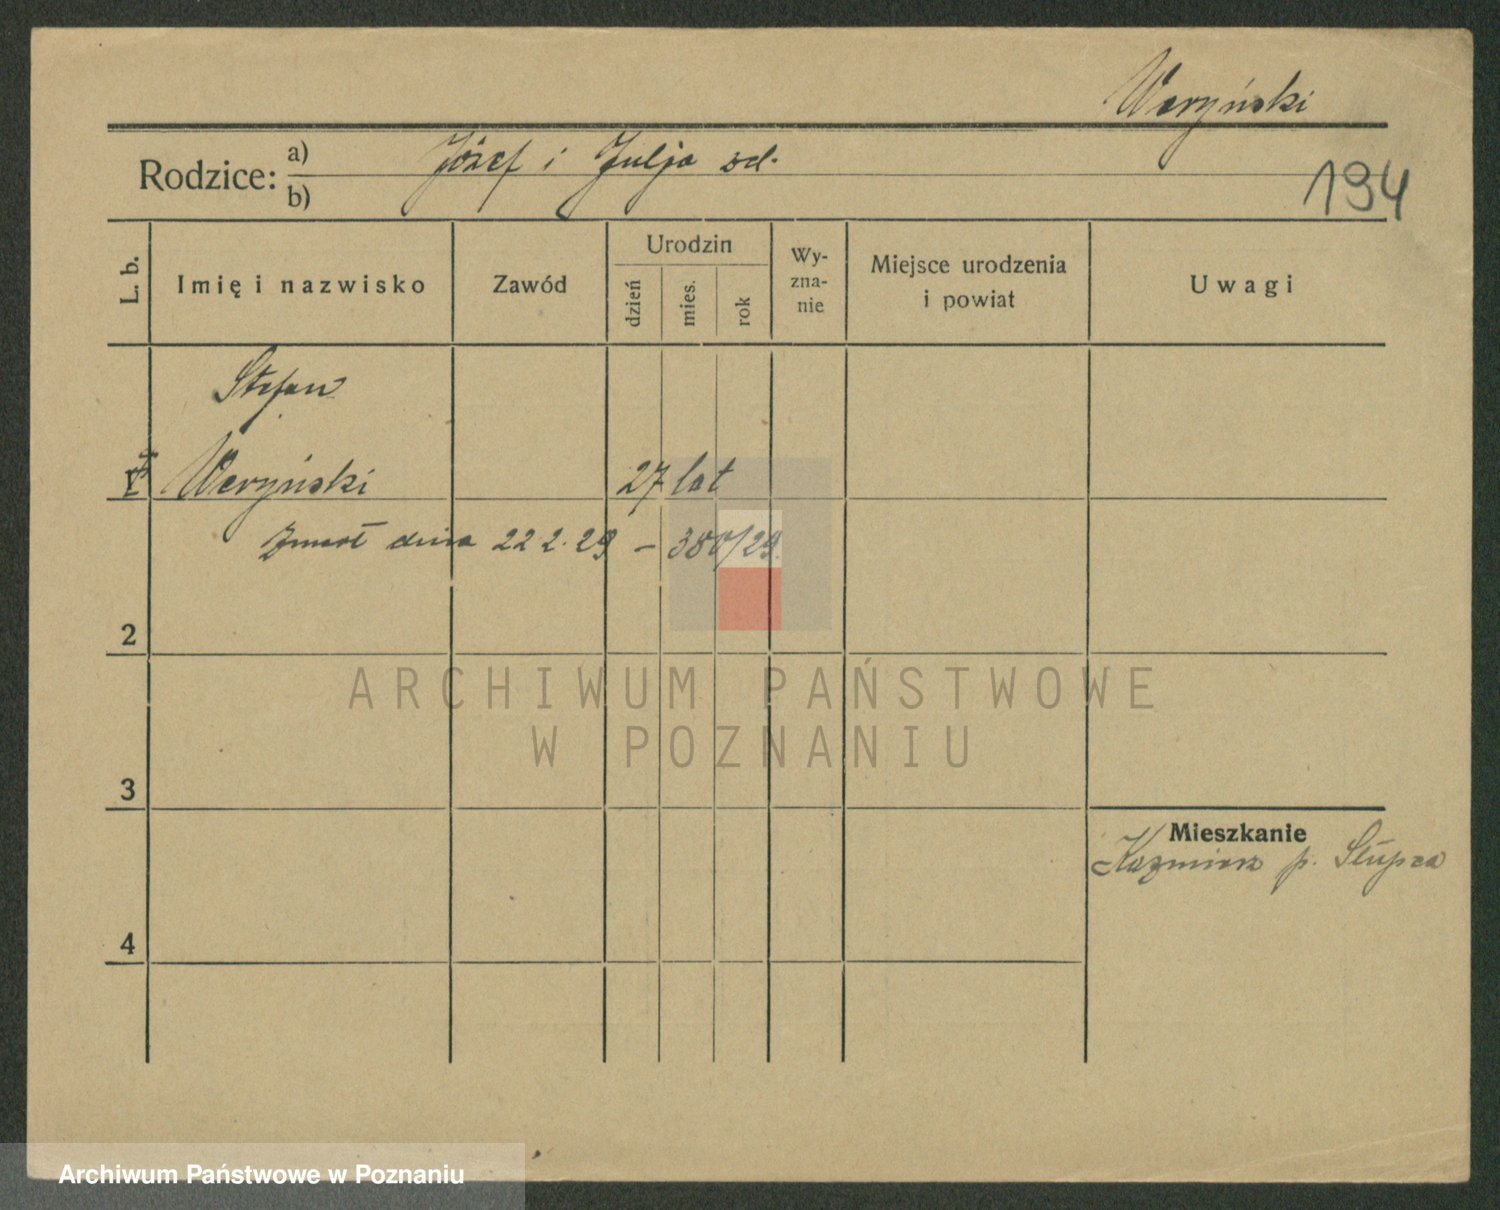 Weryński
Rodzice: a) Józef i Julja zd.
b)
194
L. b.
Imię i nazwisko
Zawód
Urodzin
dzień
mies.
rok
Wy-
zna-
nie
Miejsce urodzenia
i powiat
Uwagi
Stefan
1 Weryński 27 lat
Zmarł dnia 22 2. 29 – 380/29.
2
ARCHIWUM PAŃSTWOWE
W POZNANIU
3
Mieszkanie
Kazmierz p. Słupca
4
Archiwum Państwowe w Poznaniu